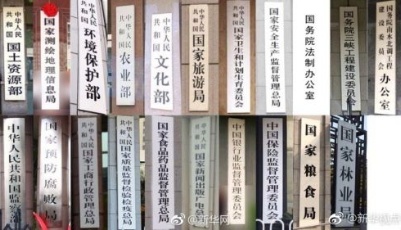 中华人民共和国
国土资源部
国家测绘地理信息局
中华人民共和国
环境保护部
中华人民共和国
农业部
中华人民共和国
文化部
中华人民共和国
国家旅游局
中华人民共和国
国家卫生和计划生育委员会
国家安全生产监督管理总局
国务院法制办公室
国务院三峡工程建设委员会
国务院南水北调工程建设委员会
办公室
中华人民共和国监察部
国家预防腐败局
中华人民共和国
国家工商行政管理总局
中华人民共和国
国家质量监督检验检疫总局
国家食品药品监督管理总局
中华人民共和国
国家新闻出版广电总局
中国银行业监督管理委员会
中国保险监督管理委员会
国家粮食局
国家林业局
@新华网
@新华视点